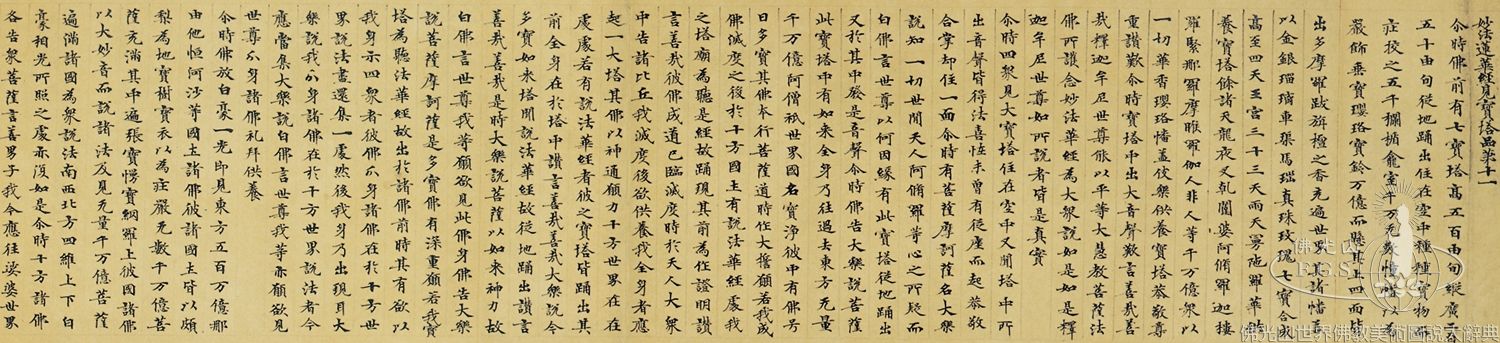 妙法蓮華經見寶塔品第十一
尒時佛前有七寶塔高五百由旬縱廣二百
五十由旬従地踊出住在空中種種寶物而
莊挍之五千欄楯龕室千万无數幢幡以為
嚴飾垂寶瓔珞寶鈴万億而懸其上四面皆
出多摩羅跋旃檀之香充遍世界其諸幡蓋
以金銀瑠璃車𤦲馬瑙真珠玫瑰七寶合成
高至四天王宮三十三天雨天曼陁羅華供
養寶塔餘諸天龍夜叉乹闥婆阿脩羅迦樓
羅緊那羅摩睺羅伽人非人等千万億衆以
一切華香瓔珞幡盖伎樂供養寶塔恭敬尊
重讃歎尒時寶塔中出大音聲歎言善哉善
哉釋迦牟尼世尊能以平等大慧教菩薩法
佛所護念妙法華經為大衆說如是如是釋
迦牟尼世尊如所說者皆是真實
尒時四衆見大寶塔住在空中又聞塔中所
出音聲皆得法喜怪未曾有従座而起恭敬
合掌却住一面尒時有菩薩摩訶薩名大樂
說知一切世間天人阿脩羅等心之所疑而
白佛言世尊以何因緣有此寶塔従地踊出
又於其中發是音聲尒時佛告大樂說菩薩
此寶塔中有如来全身乃往過去東方无量
千万億阿僧祇世界國名寶淨彼中有佛号
日多寶其佛本行菩薩道時作大誓願若我成
佛滅度之後於十方國土有說法華經處我
之塔廟為聽是經故踊現其前為作證明讃
言善哉彼佛成道已臨滅度時於天人大衆
中告諸比丘我滅度後欲供養我全身者應
起一大塔其佛以神通願力十方世界在在
處處若有說法華經者彼之寶塔皆踊出其
前全身在於塔中讃言善哉善哉大樂說今
多寶如来塔聞說法華經故従地踊出讃言
善哉善哉是時大樂說菩薩以如来神力故
白佛言世尊我等願欲見此佛身佛告大樂
說菩薩摩訶薩是多寶佛有深重願若我寶
塔為聽法華經故出於諸佛前時其有欲以
我身示四衆者彼佛分身諸佛在於十方世
界說法盡還集一處然後我身乃出現耳大
樂說我分身諸佛在於十方世界說法者今
應當集大樂說白佛言世尊我等亦願欲見
世尊分身諸佛礼拜供養
尒時佛放白豪一光即見東方五百万億那
由他恒河沙等國土諸佛彼諸國土皆以頗
梨為地寶樹寶衣以為莊嚴无數千万億菩
薩充滿其中遍張寶幔寶網羅上彼國諸佛
以大妙音而說諸法及見无量千万億菩薩
遍滿諸國為衆說法南西北方四維上下白
豪相光所照之處亦復如是尒時十方諸佛
各告衆菩薩言善男子我今應往娑婆世界
佛光山
F.G.S.
佛光山世界佛教美術圖說大辭典